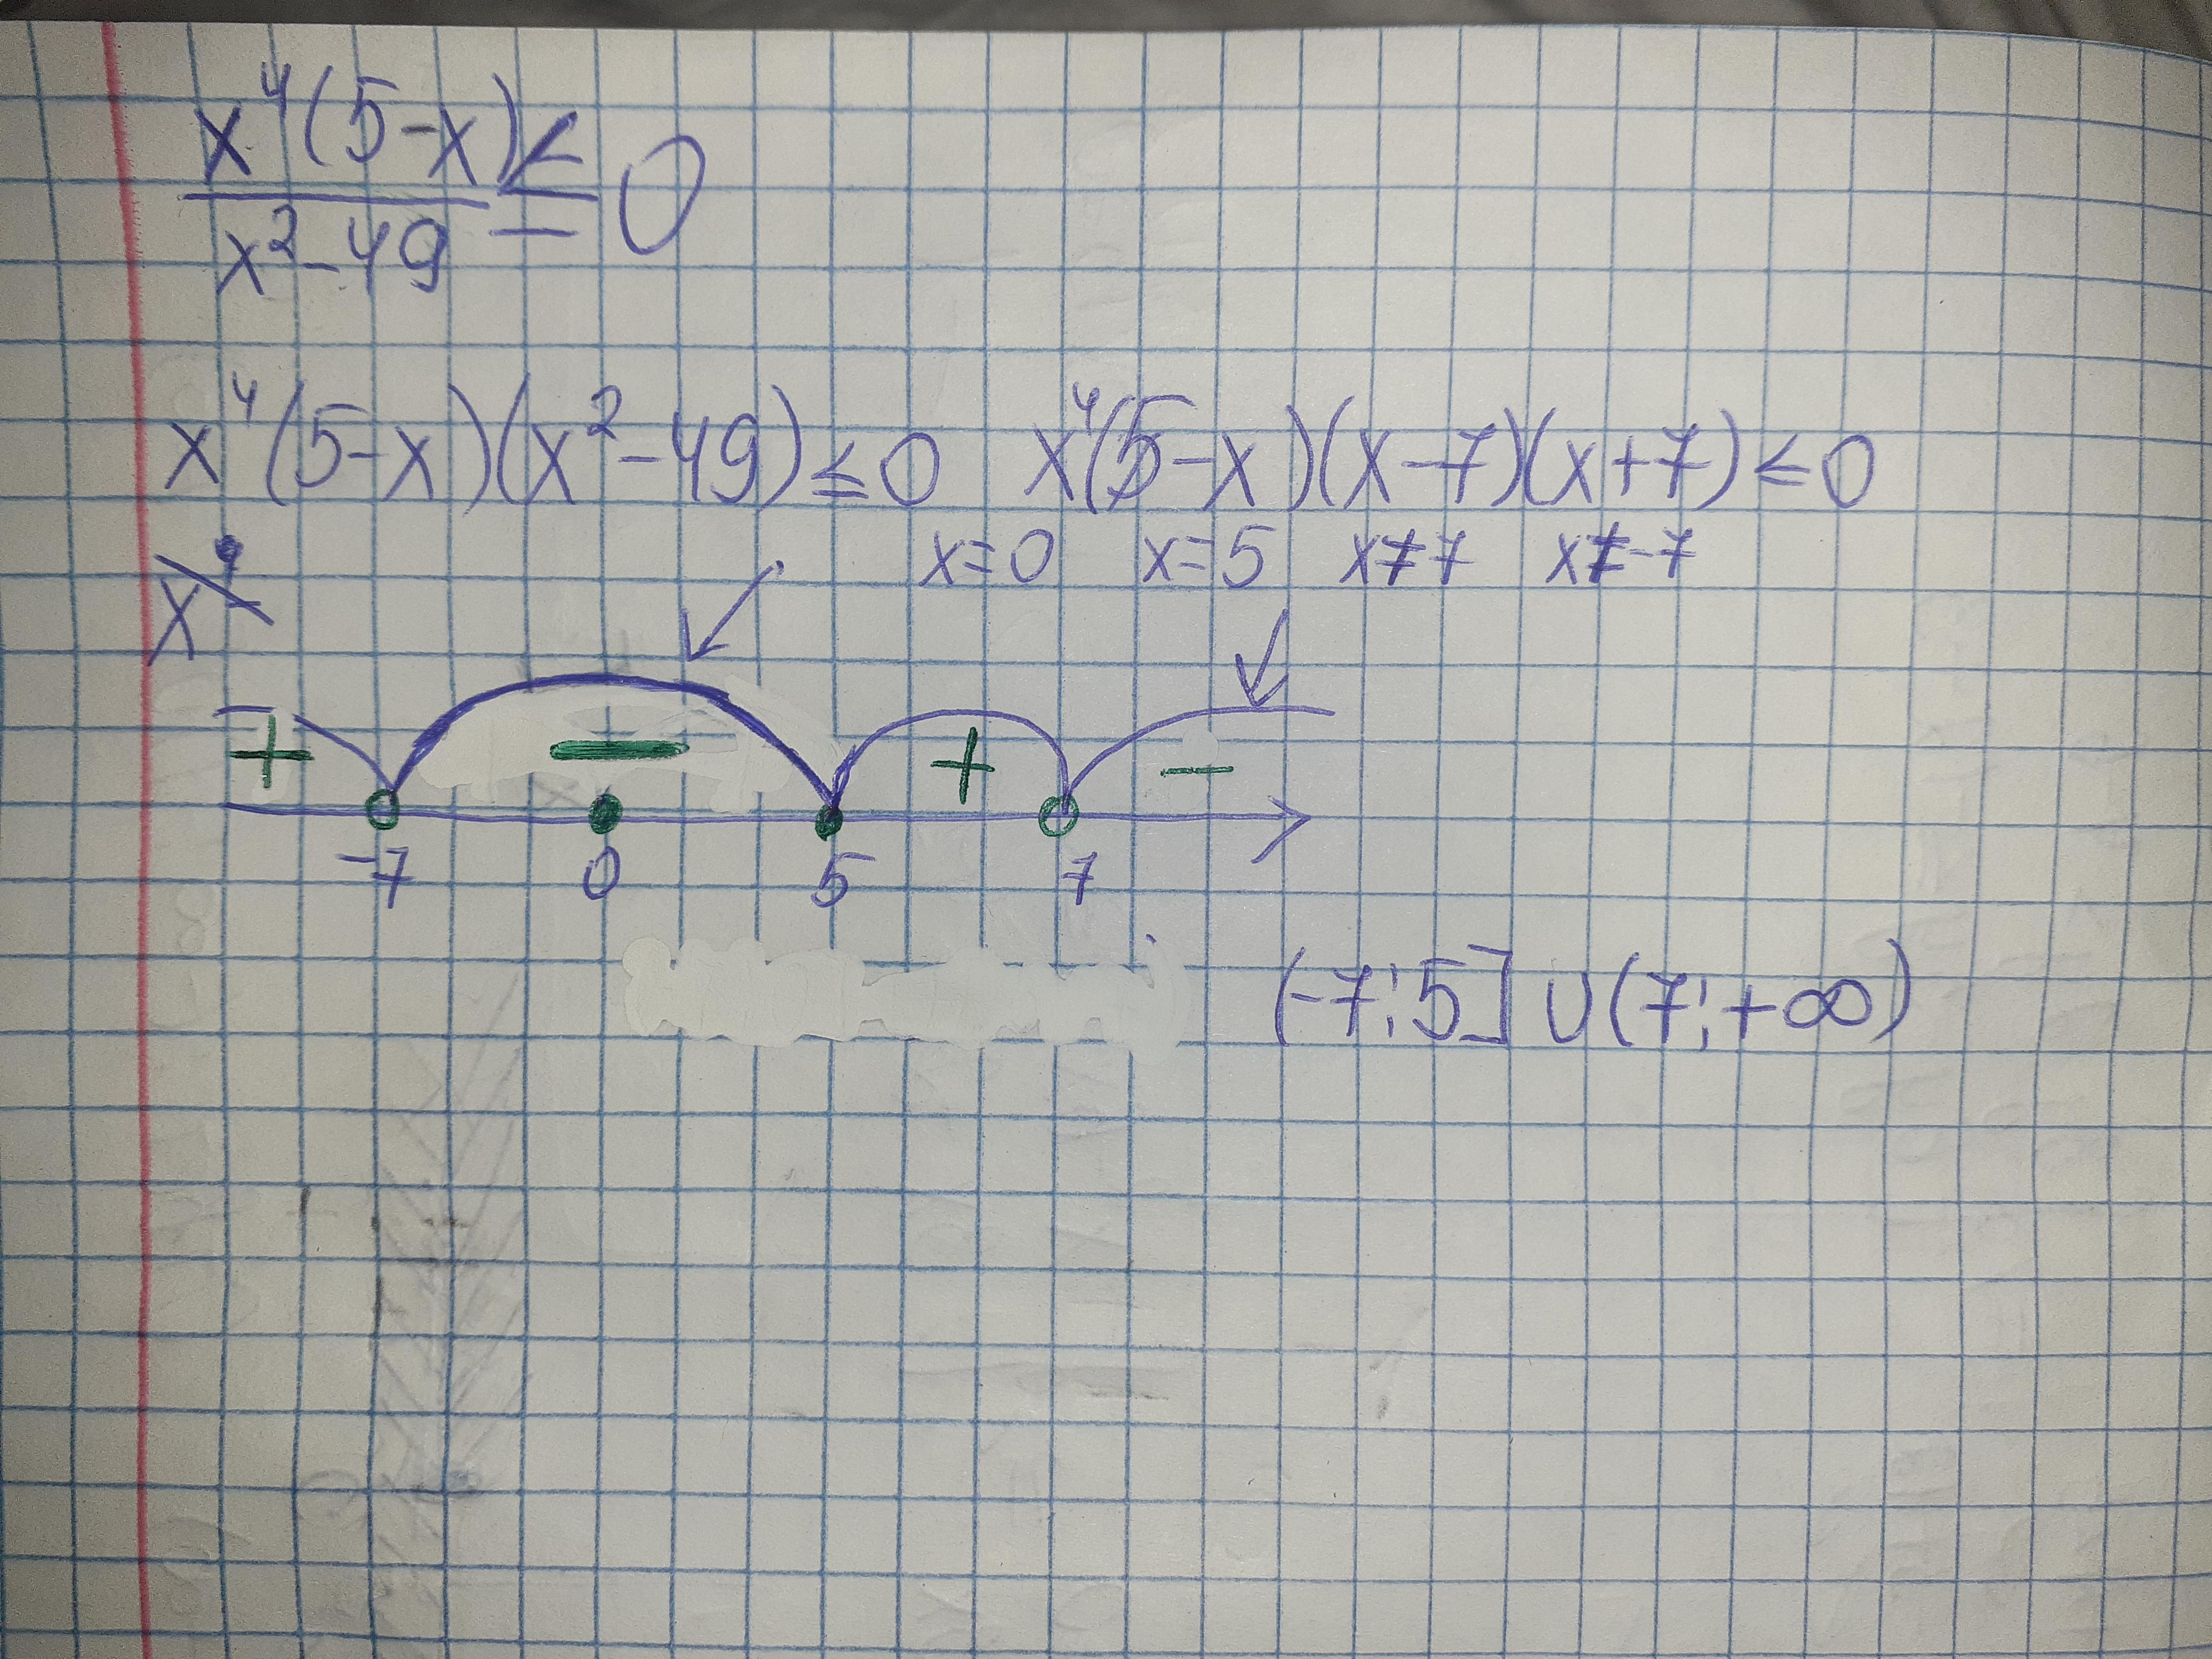 x⁴(5-x)
x²-49
≤ 0
x⁴(5-x)(x²-49)≤0 x⁴(5-x)(x-7)(x+7)≤0
x=0 x=5 x≠7 x≠-7
+ − + −
-7 0 5 7
(-7;5]∪(7;+∞)